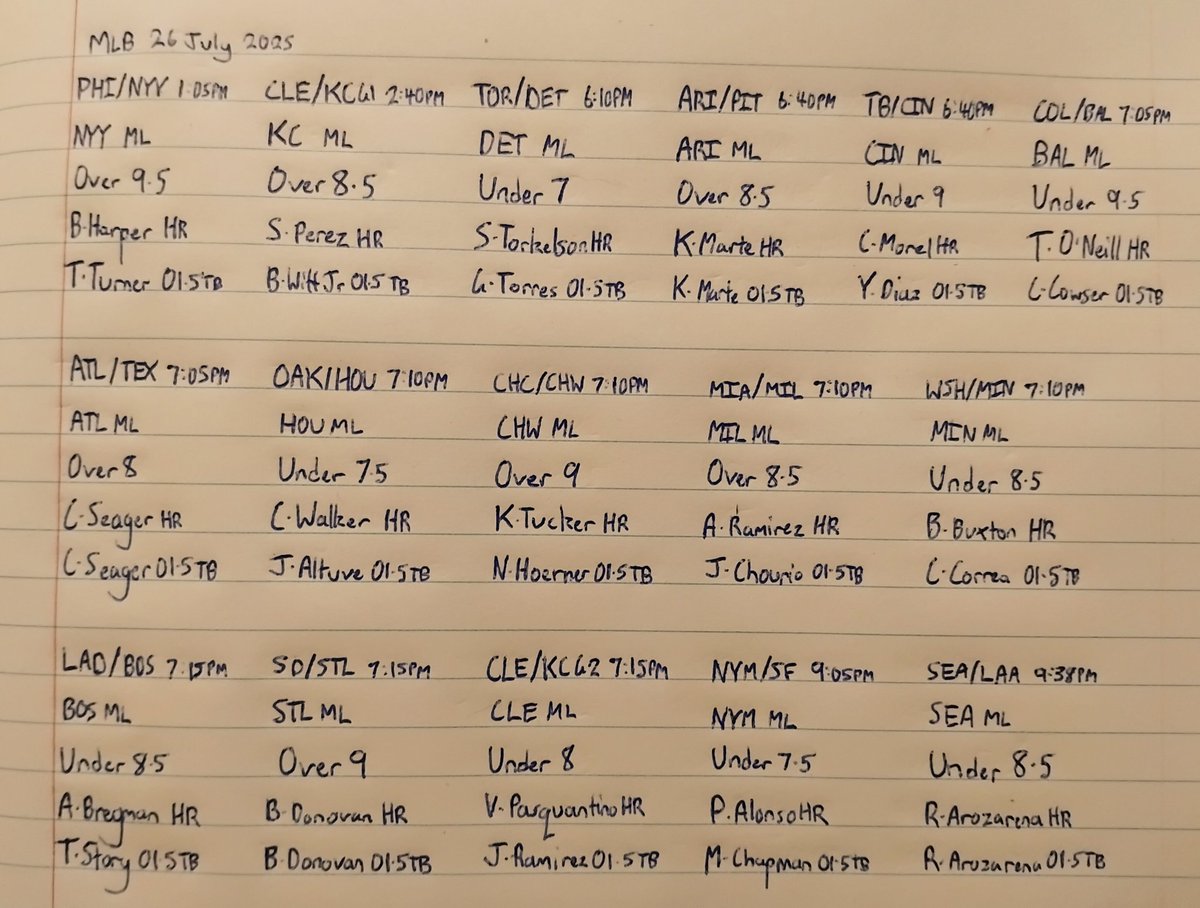 MLB 26 July 2025
PHI/NYY 1:05PM CLE/KCG1 2:40PM TOR/DET 6:10PM ARI/PIT 6:40PM TB/CIN 6:40PM COL/BAL 7:05PM
NYY ML KC ML DET ML ARI ML CIN ML BAL ML
Over 9.5 Over 8.5 Under 7 Over 8.5 Under 9 Under 9.5
B.Harper HR S.Perez HR S.Torkelson HR K.Marte HR C.Morel HR T.O'Neill HR
T.Turner O1.5TB B.Witt Jr O1.5TB G.Torres O1.5TB K.Marte O1.5TB Y.Diaz O1.5TB C.Cowser O1.5TB
ATL/TEX 7:05PM OAK/HOU 7:10PM CHC/CHW 7:10PM MIA/MIL 7:10PM WSH/MIN 7:10PM
ATL ML HOU ML CHW ML MIL ML MIN ML
Over 8 Under 7.5 Over 9 Over 8.5 Under 8.5
C.Seager HR C.Walker HR K.Tucker HR A.Ramirez HR B.Buxton HR
C.Seager O1.5TB J.Altuve O1.5TB N.Hoerner O1.5TB J.Chourio O1.5TB C.Correa O1.5TB
LAD/BOS 7:15PM SD/STL 7:15PM CLE/KCG2 7:15PM NYM/SF 9:05PM SEA/LAA 9:38PM
BOS ML STL ML CLE ML NYM ML SEA ML
Under 8.5 Over 9 Under 8 Under 7.5 Under 8.5
A.Bregman HR B.Donovan HR V.Pasquantino HR P.Alonso HR R.Arozarena HR
T.Story O1.5TB B.Donovan O1.5TB J.Ramirez O1.5TB M.Chapman O1.5TB R.Arozarena O1.5TB